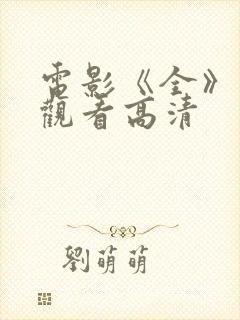 電影《全》
觀看高清
劉萌萌